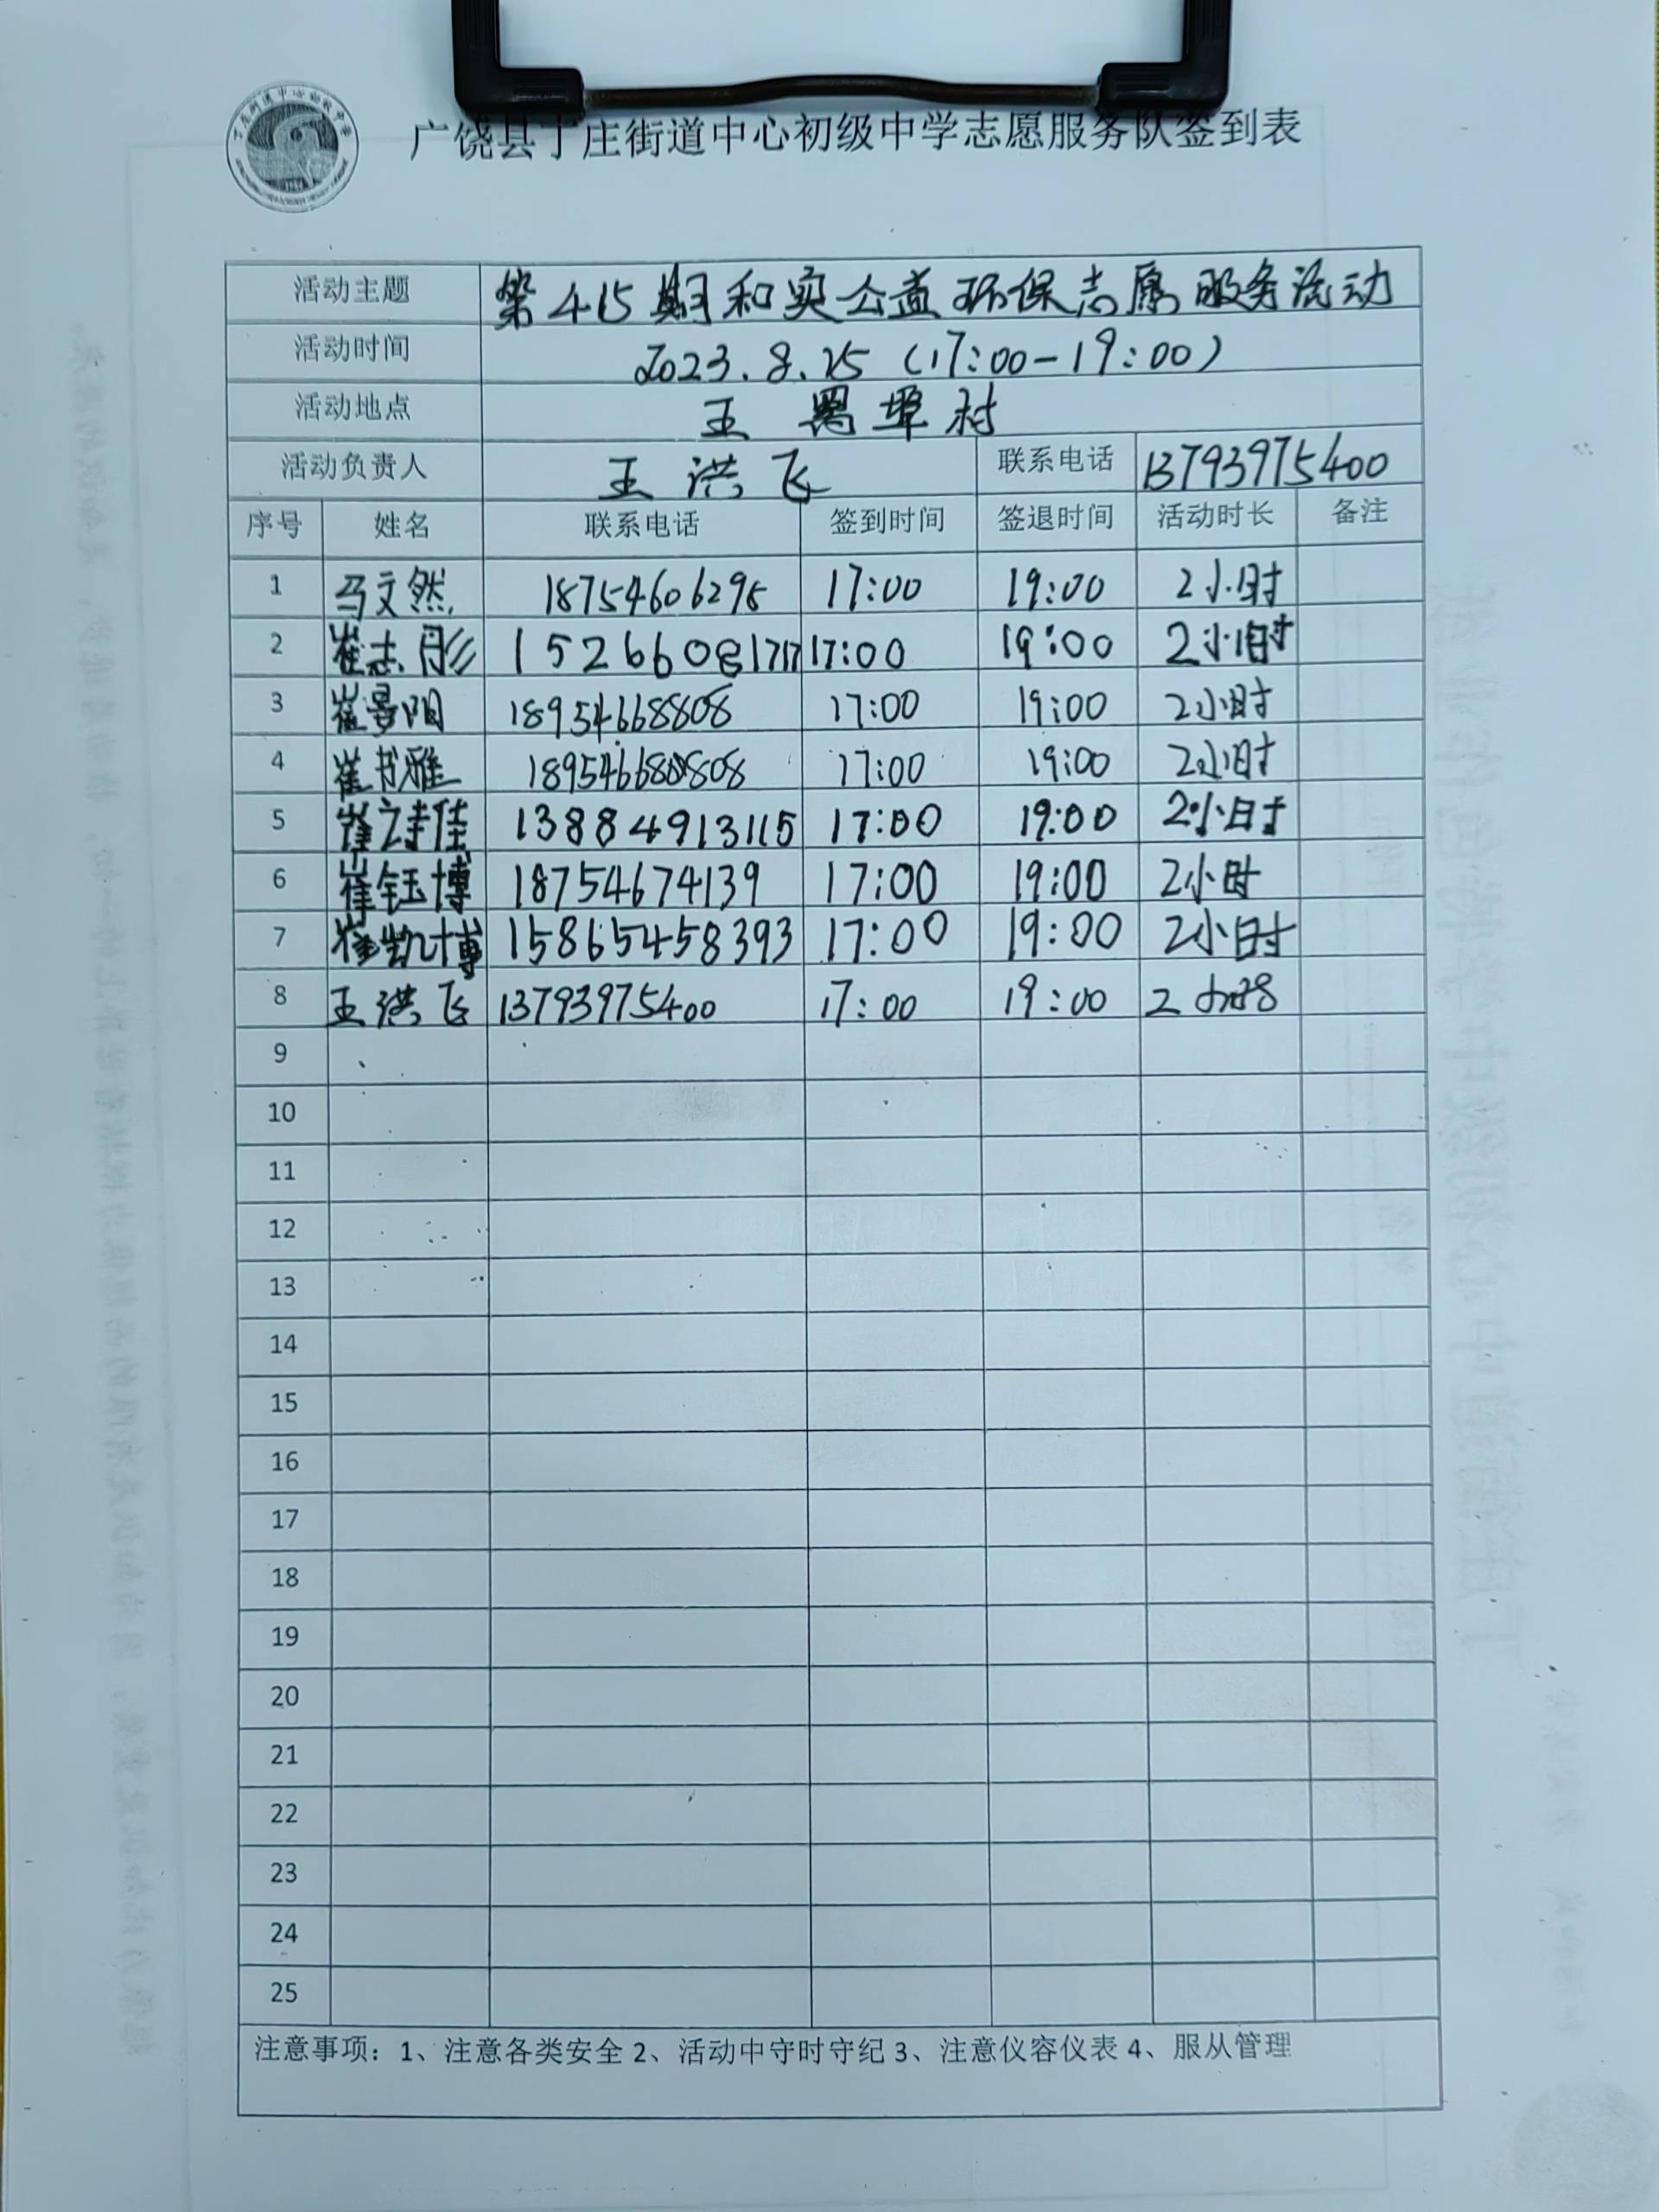 广饶县丁庄街道中心初级中学志愿服务队签到表
活动主题 第415期和实公益环保志愿服务活动
活动时间 2023.8.25（17:00-19:00）
活动地点 王署埠村
活动负责人 王洪飞 联系电话 13793975400
序号 姓名 联系电话 签到时间 签退时间 活动时长 备注
1 马文然 18754606296 17:00 19:00 2小时
2 崔志彤 15266081717 17:00 19:00 2小时
3 崔景阳 18954668808 17:00 19:00 2小时
4 崔书雅 17:00 19:00 2小时
5 13884913115 17:00 19:00 2小时
6 崔钰博 18754674139 17:00 19:00 2小时
7 崔凯博 15865458393 17:00 19:00 2小时
8 王洪飞 13793975400 17:00 19:00 2小时
9
10
11
12
13
14
15
16
17
18
19
20
21
22
23
24
25
注意事项：1、注意各类安全 2、活动中守时守纪 3、注意仪容仪表 4、服从管理